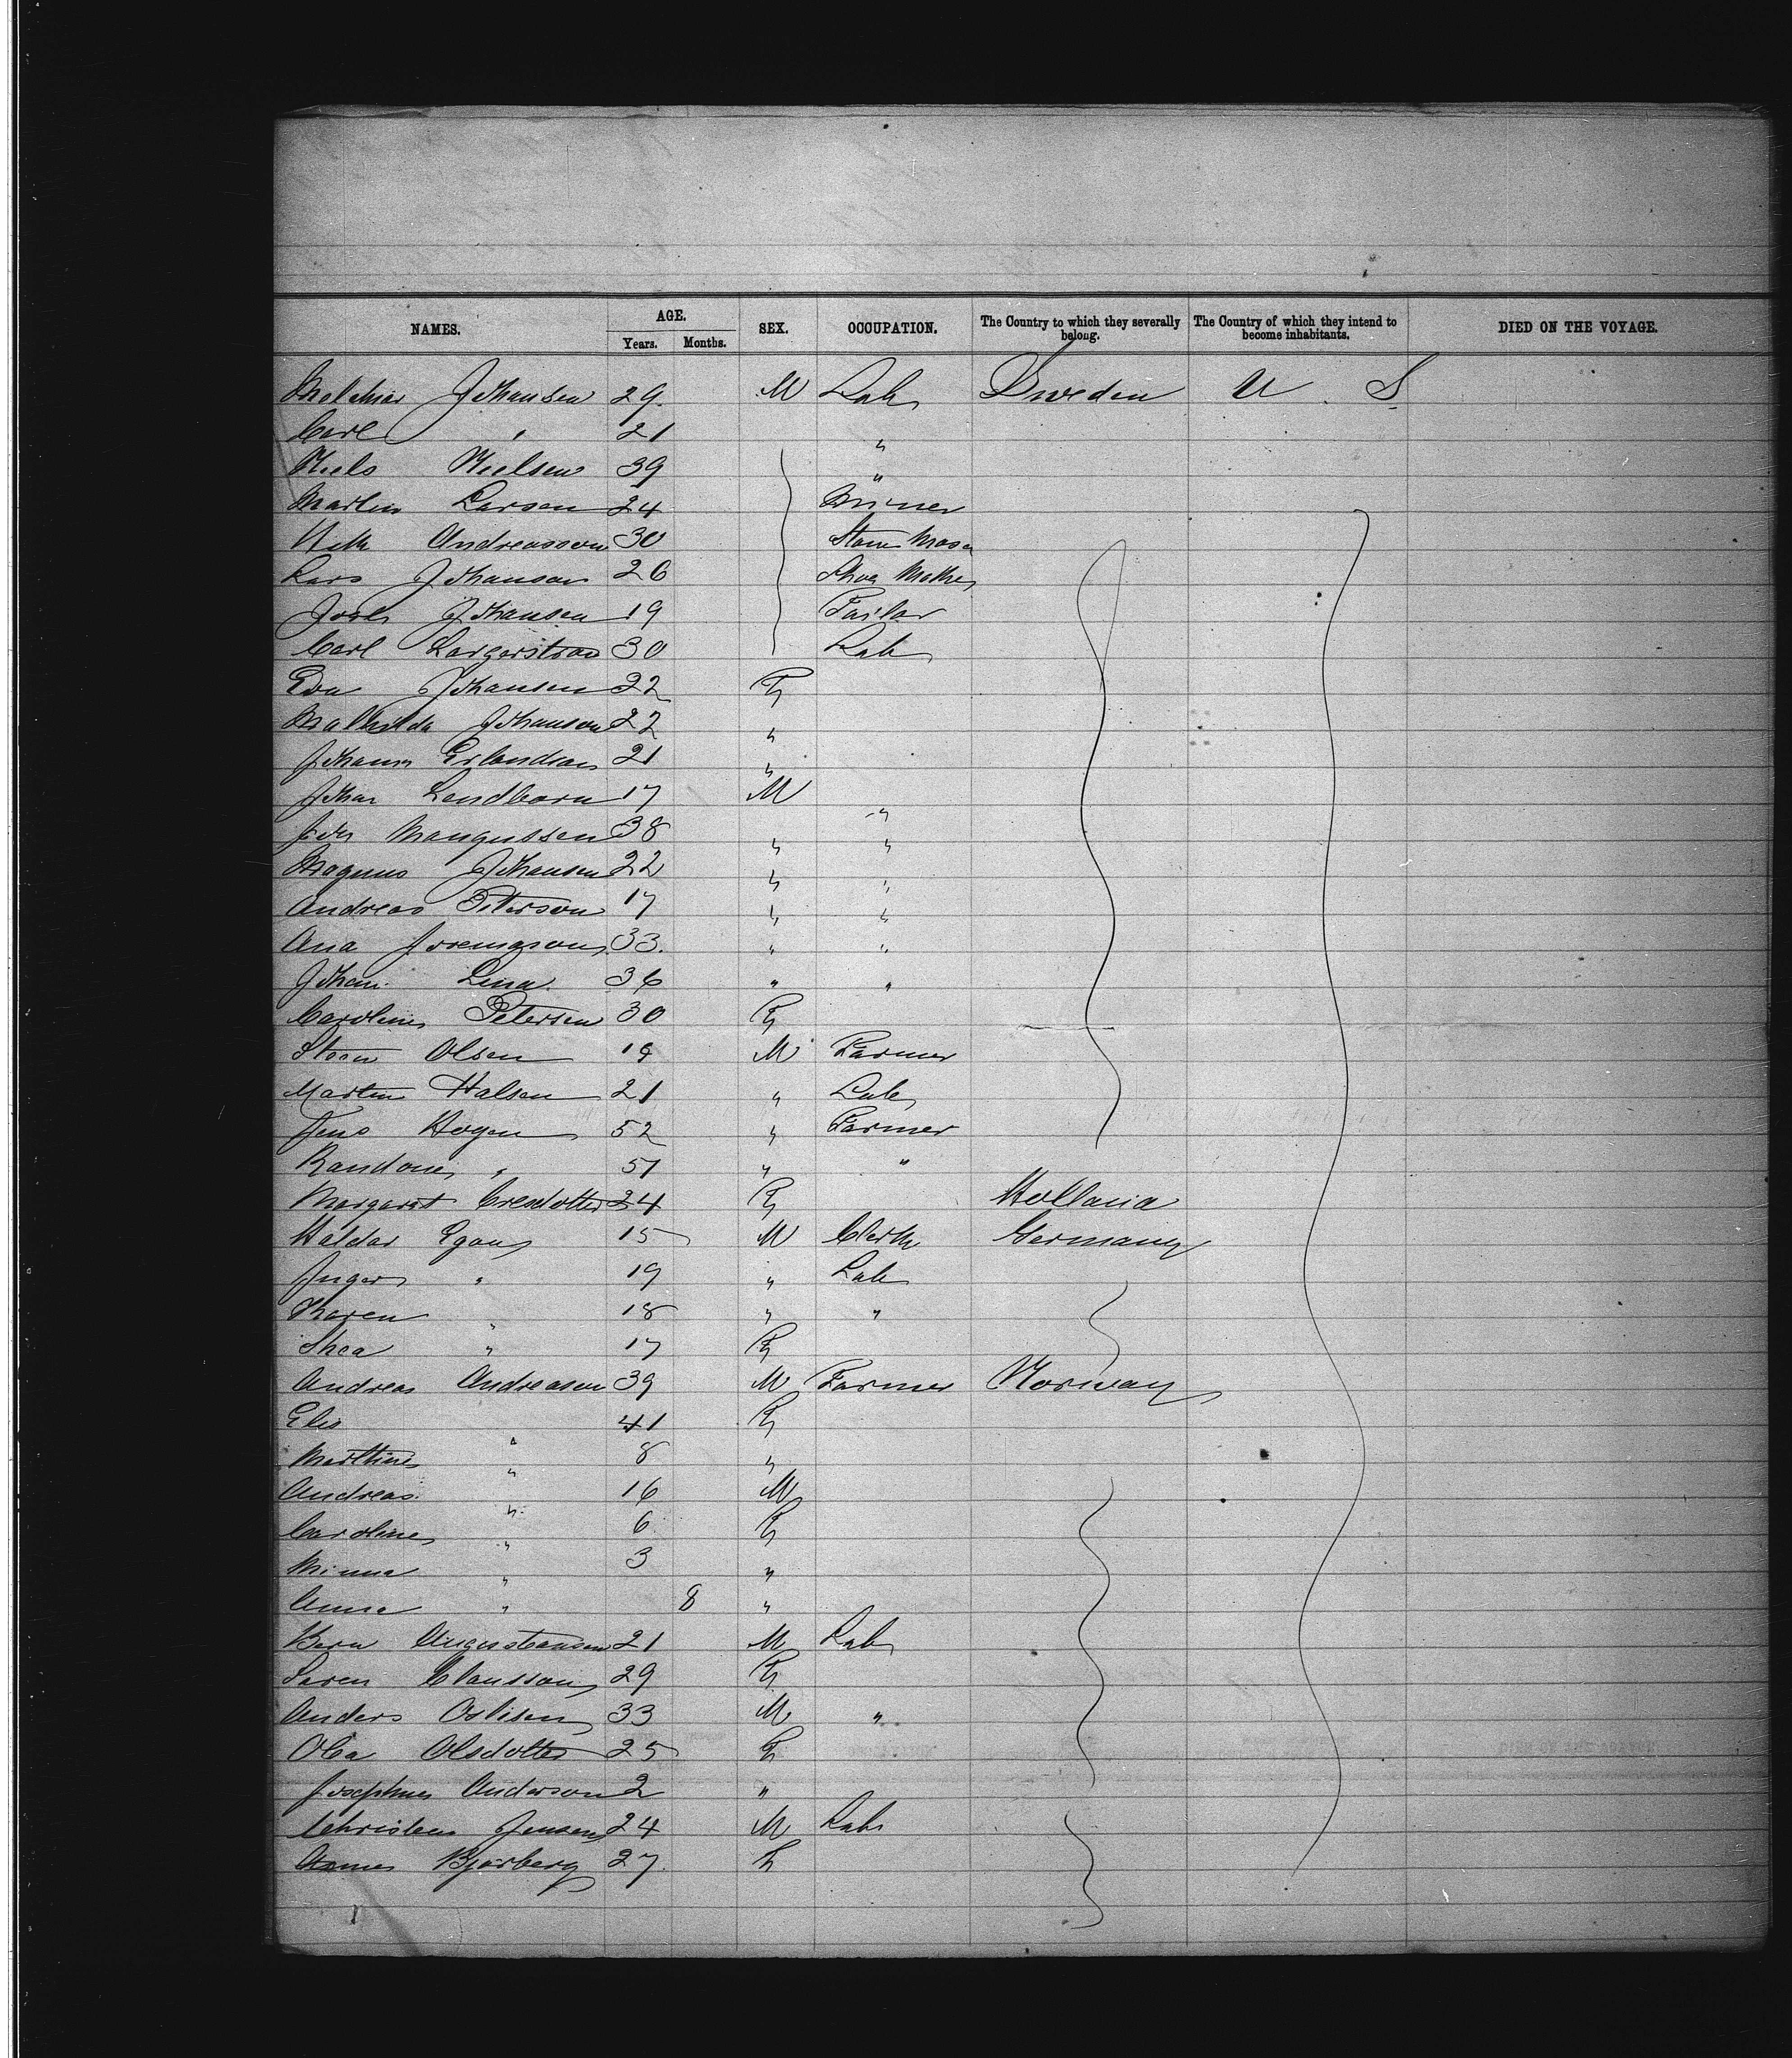 NAMES. AGE. SEX. OCCUPATION. The Country to which they severally belong. The Country of which they intend to become inhabitants. DIED ON THE VOYAGE.
Years. Months.
Melchior Johansen 29. M Lab Sweden U. S.
Carl " 21 "
Niels Nielsen 39 "
Martin Larsen 24 Miner
Andreasson 30 Stone Mason
Lars Johanson 26 Shoe Maker
Johansen 19 Tailor
Carl 30 Lab
Eva Johansen 22 F
Mathilda Johanson 22 "
Johann Erlandson 21 "
Johan Lendborn 17 M "
Mangussen 38 " "
Magnus Johansen 22 " "
Andreas Peterson 17 " "
Ana 33. " "
Johan Lina. 36 " "
Caroline Petersen 30 F
Olsen 19 M Farmer
Martin Halsen 21 " Lab
Jens Hogen 52 " Farmer
" 51 " "
Margaret 24 F Holland
Haldor Egan 15 M Clerk Germany
Inger " 19 " Lab
Karen " 18 " "
Thea " 17 F
Andreas Andreason 39 M Farmer Norway
Elis " 41 F
" 8 "
Andreas. " 16 M
Caroline " 6 F
Minna " 3 "
Anna " 8 "
Bern 21 M Lab
Soren Clausson 29 F
Anders 33 M "
Olsdotter 25 F
Josephine Anderson 2 "
Christen Jensen 24 M Lab
Bjorberg 27. F